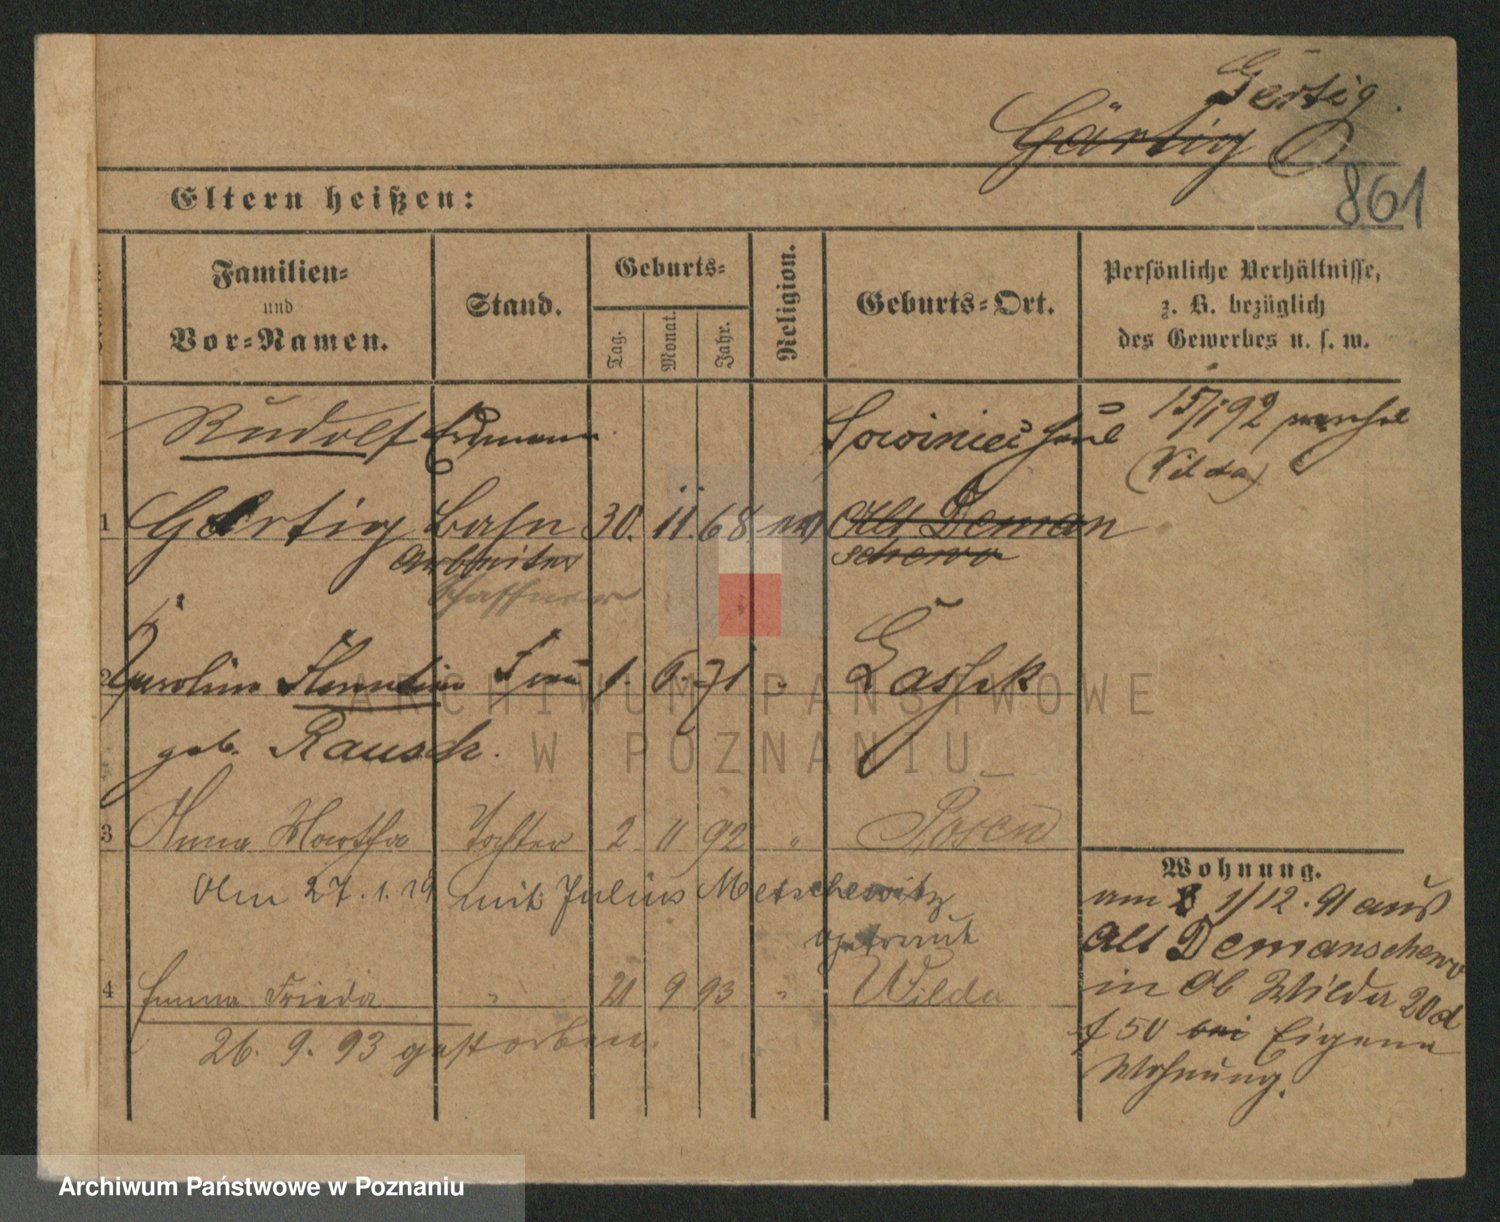 Gertig.
Gärtig
861
Eltern heißen:
Familien-
und
Vor-Namen.
Stand.
Geburts-
Tag.
Monat.
Jahr.
Religion.
Geburts-Ort.
Persönliche Verhältnisse,
z. B. bezüglich
des Gewerbes u. s. w.
Rudolf Erdmann
15/1 92
(Wilda)
1 Gertig Bahn 30. 11. 68 Alt Deman
arbeiter schewo
Schaffner
2 Florentine Frau 1. 6. 71 "
geb. Rausch.
3 Anna Martha Tochter 2 11 92 " Posen
Am 27. 1. 19 mit Julius Metschewitz
getraut
4 Emma Frieda " 21 9 93 " Wilda
26. 9. 93 gestorben.
Wohnung.
am 1/12. 91 aus
Alt Demanschewo
in Ob Wilda 20d
f 50 bei Eigene
Wohnung.
ARCHIWUM PAŃSTWOWE
W POZNANIU_
Archiwum Państwowe w Poznaniu